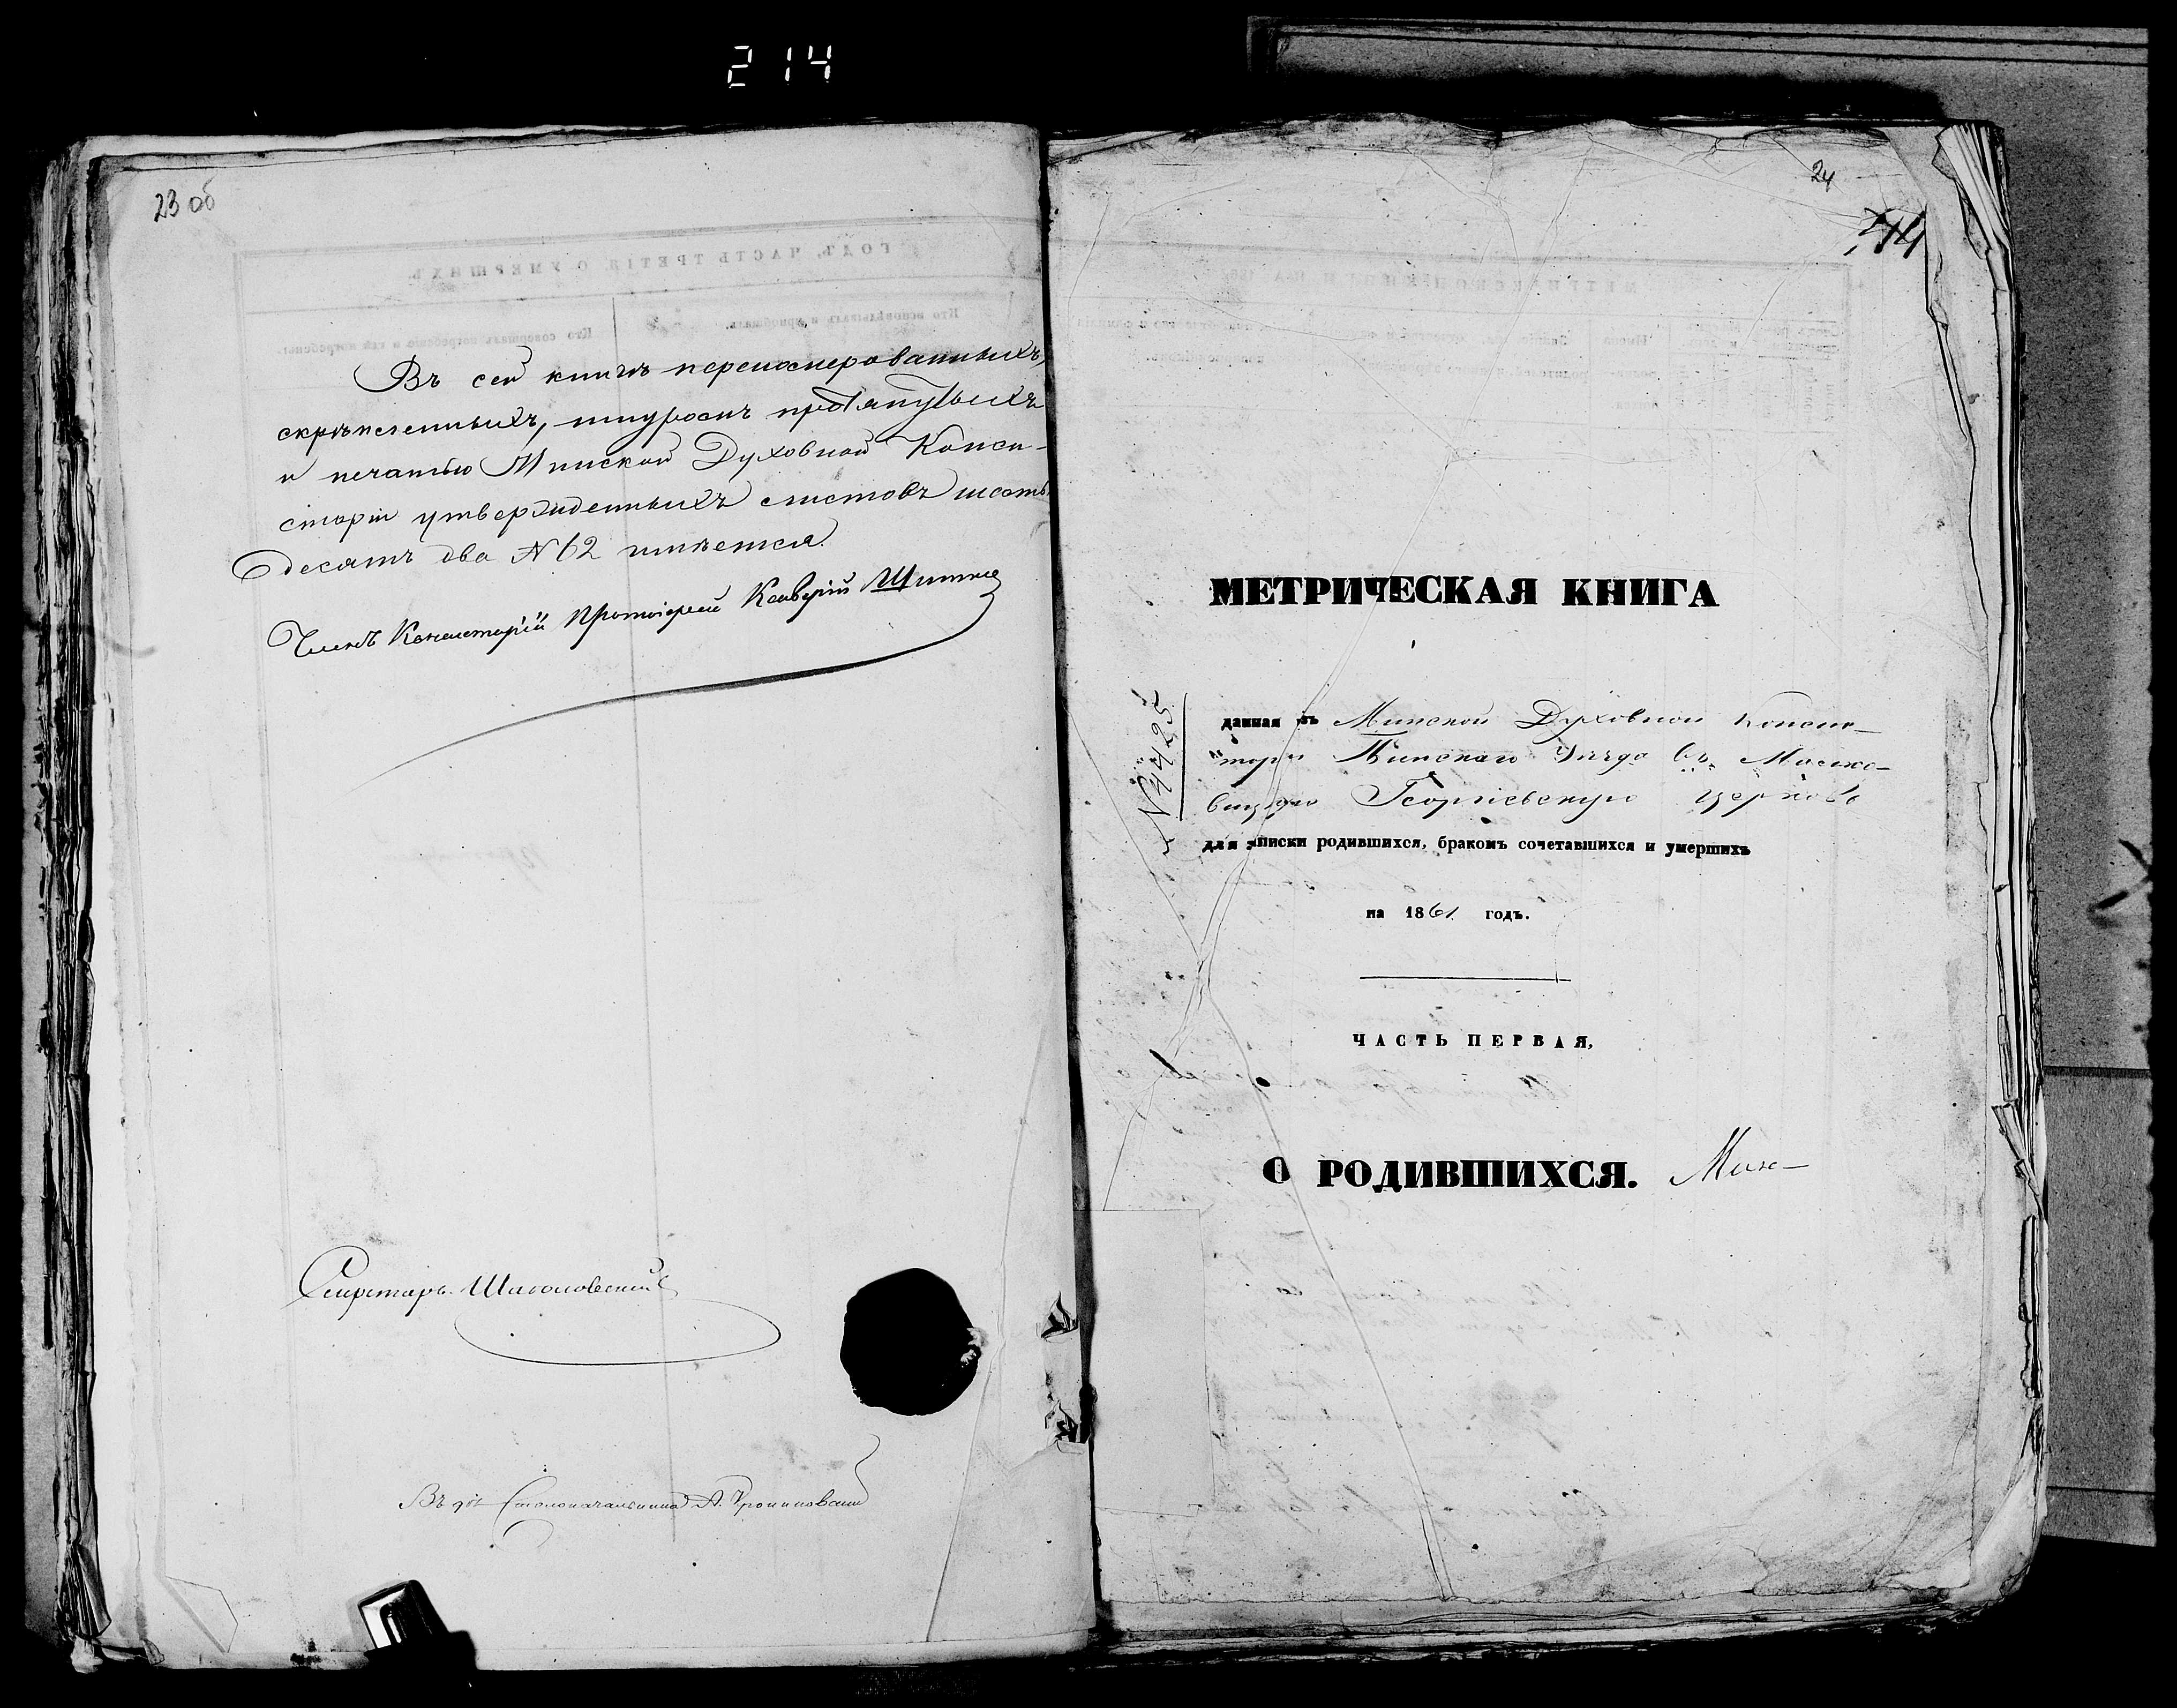 214
23 об
Въ сей книгѣ перенумерованныхъ,
скрѣпленныхъ, шнуромъ протянутыхъ
и печатью Минской Духовной Конси-
сторіи утвержденныхъ листовъ шесть-
десятъ два № 62 имѣется.
Членъ Консисторіи Протоіерей
Секретарь
Столоначальника А.
24
214
МЕТРИЧЕСКАЯ КНИГА
№ 4425
данная въ Минской Духовной Конси-
сторіи Пинскаго Уѣзда въ
Георгіевскую церковь
для записки родившихся, бракомъ сочетавшихся и умершихъ
на 1861 годъ.
ЧАСТЬ ПЕРВАЯ,
О РОДИВШИХСЯ. Мин-